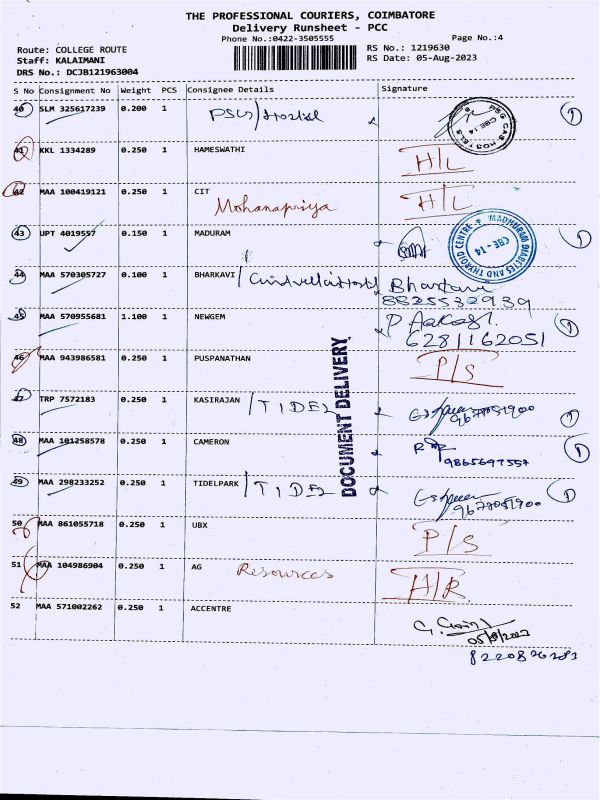 THE PROFESSIONAL COURIERS, COIMBATORE
Delivery Runsheet - PCC
Phone No.:0422-3505555 Page No.:4
Route: COLLEGE ROUTE RS No.: 1219630
Staff: KALAIMANI RS Date: 05-Aug-2023
DRS No.: DCJB121963004
S No Consignment No Weight PCS Consignee Details Signature
40 SLM 325617239 0.200 1 PSG/Hostel PSG CAS HOSTELS CBE-14 1
41 KKL 1334289 0.250 1 HAMESWATHI H/L
42 MAA 100419121 0.250 1 CIT H/L
Mohanapriya
43 UPT 4019557 0.150 1 MADURAM MADHURAM DIABETES AND THYROID CENTRE CBE - 14 1
44 MAA 570305727 0.100 1 BHARKAVI
8825532939
45 MAA 570955681 1.100 1 NEWGEM P Aakash. 1
6281162051
46 MAA 943986581 0.250 1 PUSPANATHAN P/S
DOCUMENT DELIVERY
47 TRP 7572183 0.250 1 KASIRAJAN /TIDEL 9677051900 1
48 MAA 101258578 0.250 1 CAMERON 9865697557 1
49 MAA 298233252 0.250 1 TIDELPARK /TIDEL 9677051900 1
50 MAA 861055718 0.250 1 UBX P/S
51 MAA 104986904 0.250 1 AG Resources H/R
52 MAA 571002262 0.250 1 ACCENTRE
05/8/2023